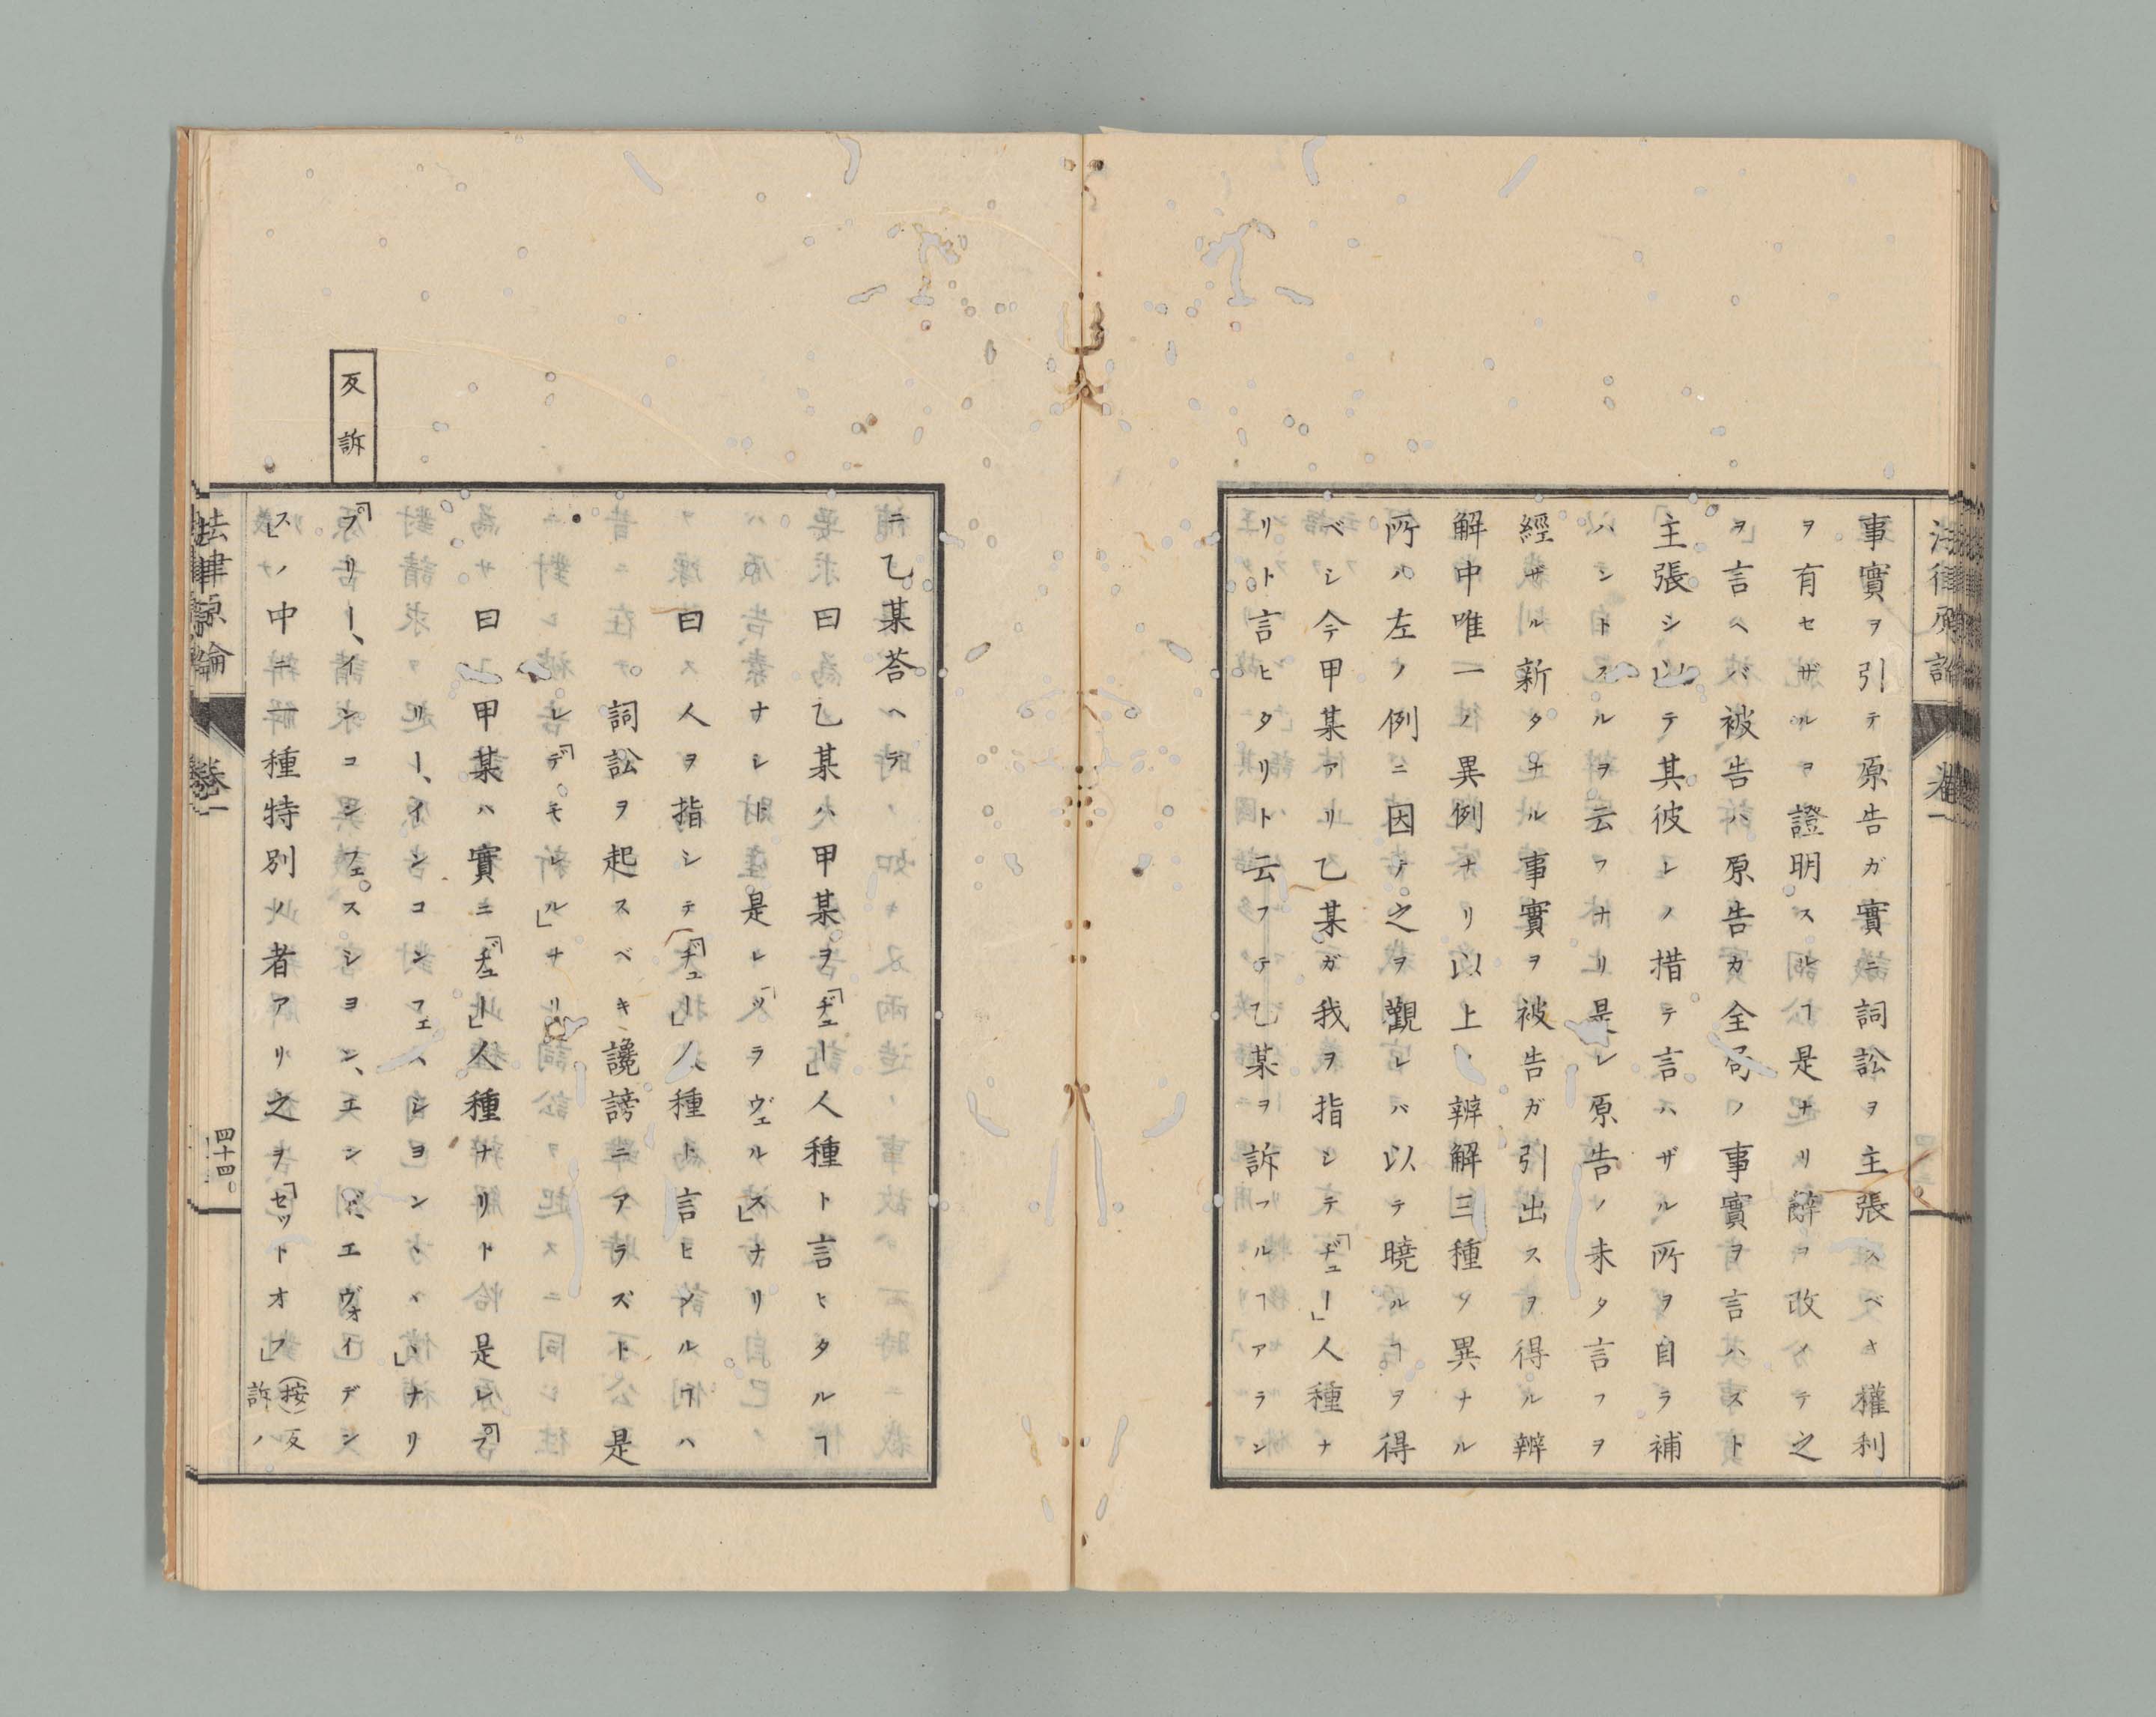 事實ヲ引テ原告ガ實ニ詞訟ヲ主張スベキ權利
ヲ有セザルヲ證明スルヿ是ナリ辭ヲ改メテ之
ヲ言ヘバ被告ハ原告カ全局ノ事實ヲ言ハスト
主張シ以テ其彼レノ措テ言ハザル所ヲ自ラ補
ハントスルヲ云フナリ是レ原告ノ未タ言フヲ
經ザル新タナル事實ヲ被告ガ引出スヲ得ル辨
解中唯一ノ異例ナリ以上ノ辨解三種ノ異ナル
所ハ左ノ例ニ因テ之ヲ觀レバ以テ曉ルヿヲ得
ベシ今甲某アリ乙某ガ我ヲ指シテ「ヂュー」人種ナ
リト言ヒタリト云フテ乙某ヲ訴フルヿアラン
ニ乙某荅ヘテ
曰乙某ハ甲某ヲ「ヂュー」人種ト言ヒタルヿ
ナシト是レ「ツラヴェルス」ナリ
曰人ヲ指シテ「ヂュー」人種ト言ヒシルヿハ
詞訟ヲ起スベキ讒謗ニアラズト是
レ「デモレル」ナリ
曰甲某ハ實ニ「ヂュー」人種ナリト是レ「プ
リー、イン、コンフェスシヨン」ナリ
反訴
「プリー、イン、コンフェスシヨン、エンド、エヴォイデン
ス」ノ中ニ一種特別ノ者アリ之ヲ「セットオフ」(按)反
訴ノ
法律原論 卷一
四十四